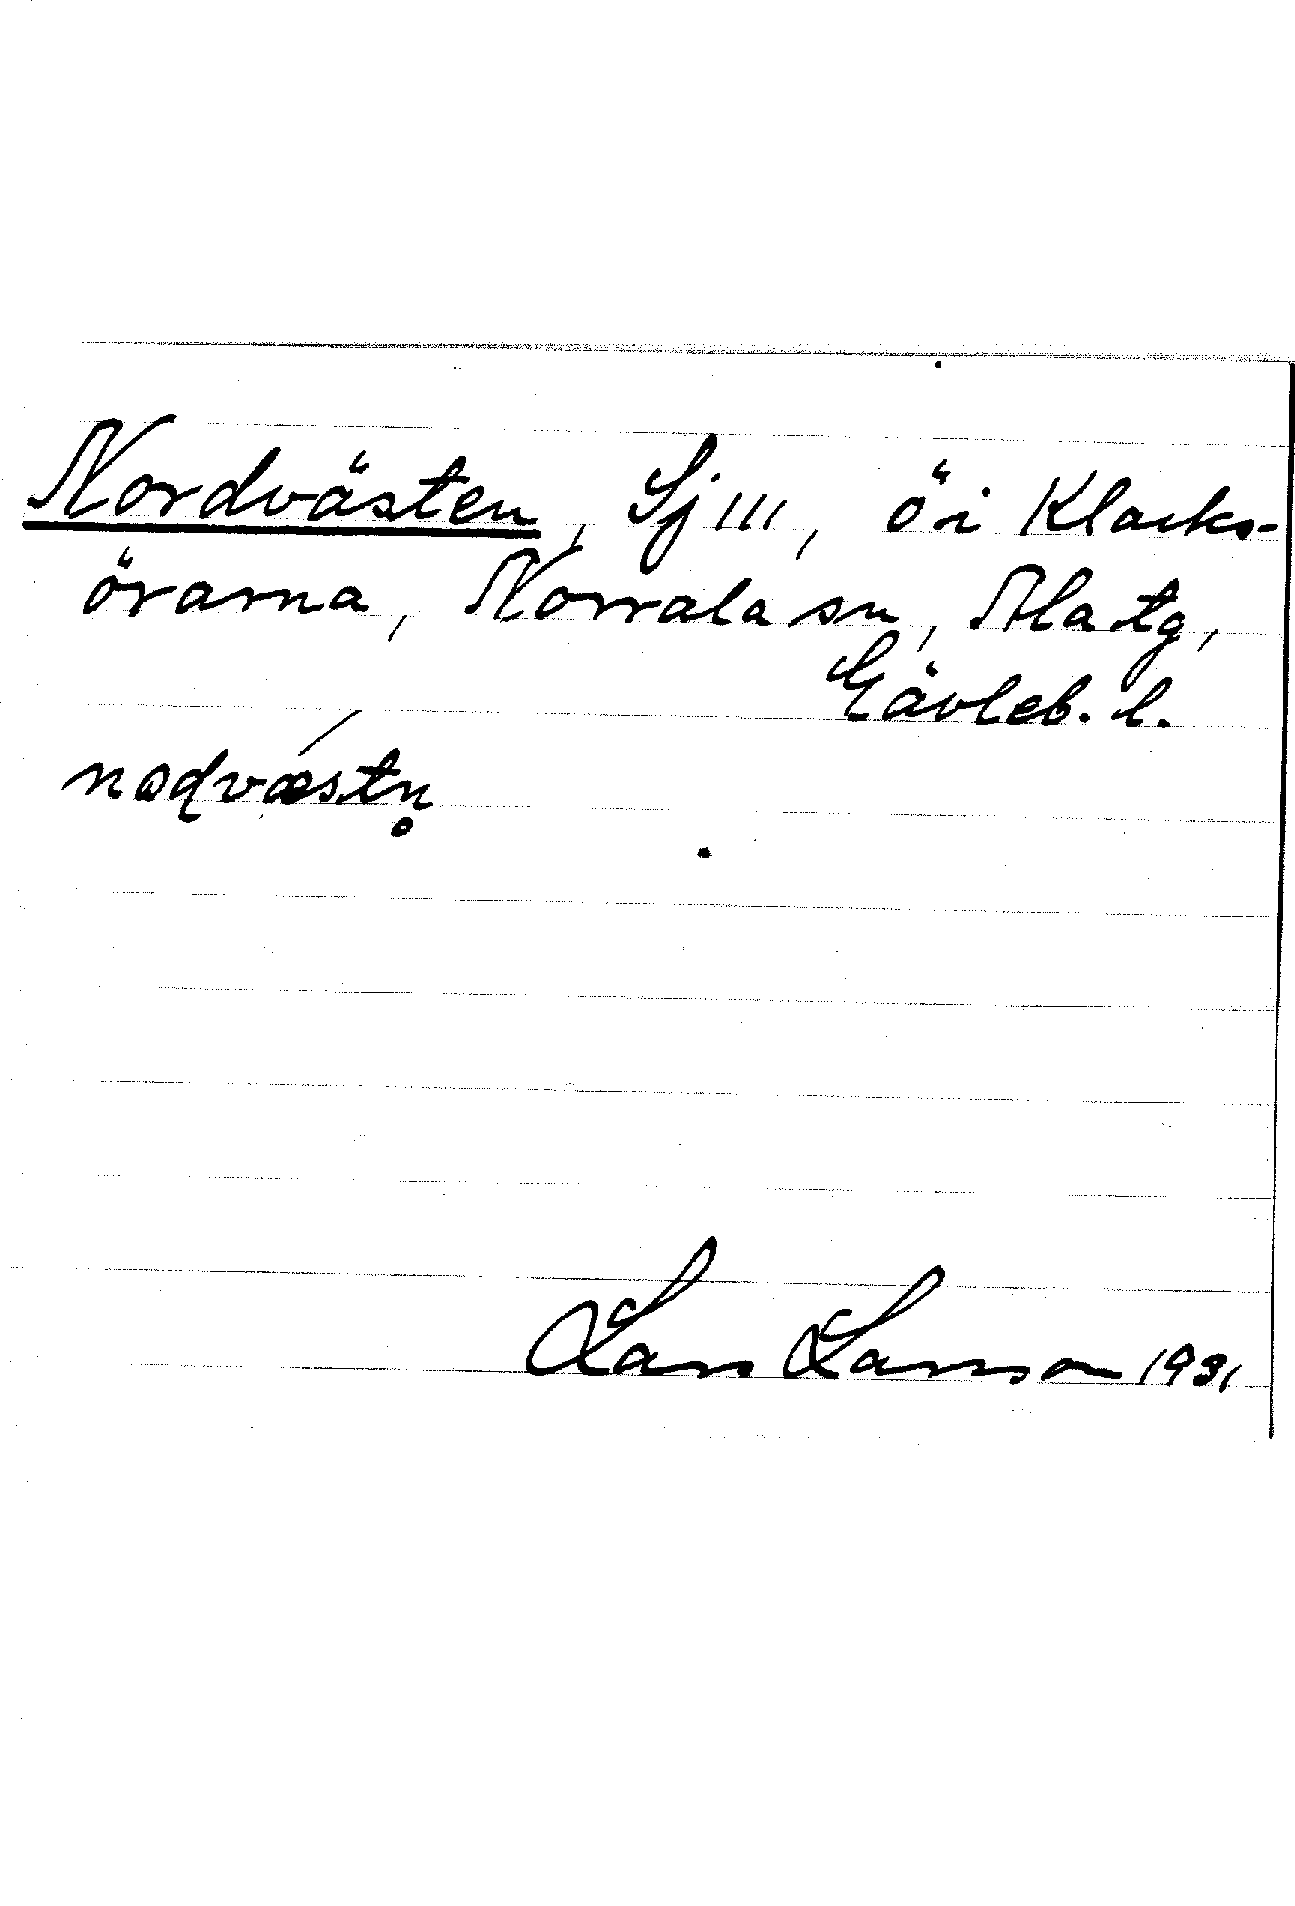 Nordvästen, Sj III, ö i Klacks-
örarna, Norrala sn, Ala tg,
Gävleb. l.
Lars Larsson 1931